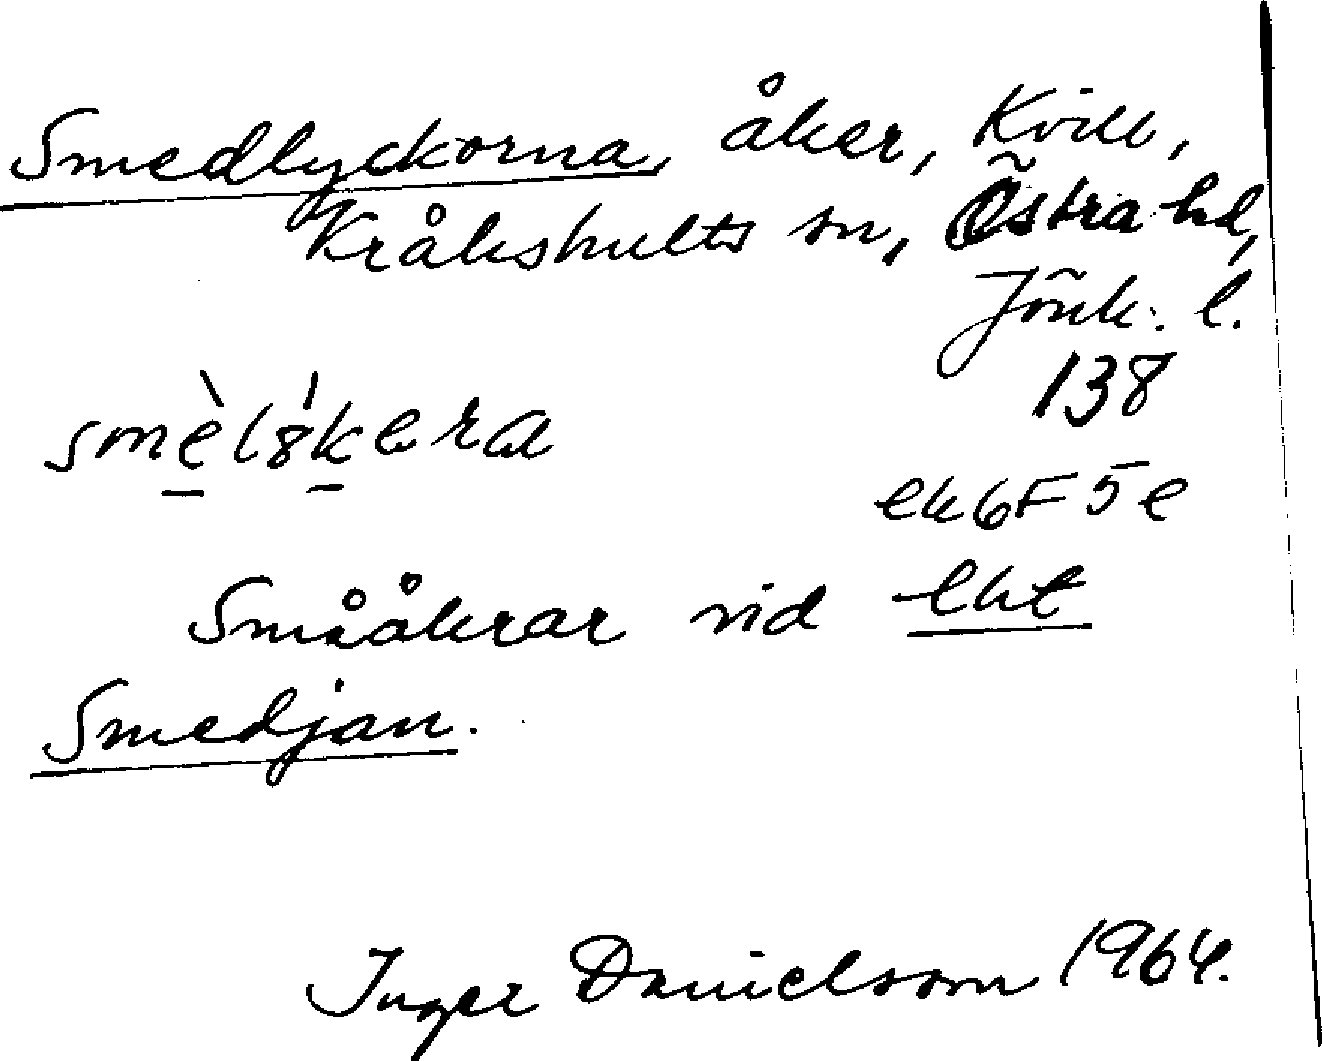 Smedlyckorna, åker, Kvill,
Kråkshults sn, Östra hd,
Jönk. l.
138
ek 6F 5e
Smååkrar vid lht
Smedjan.
Inger Danielsson 1964.